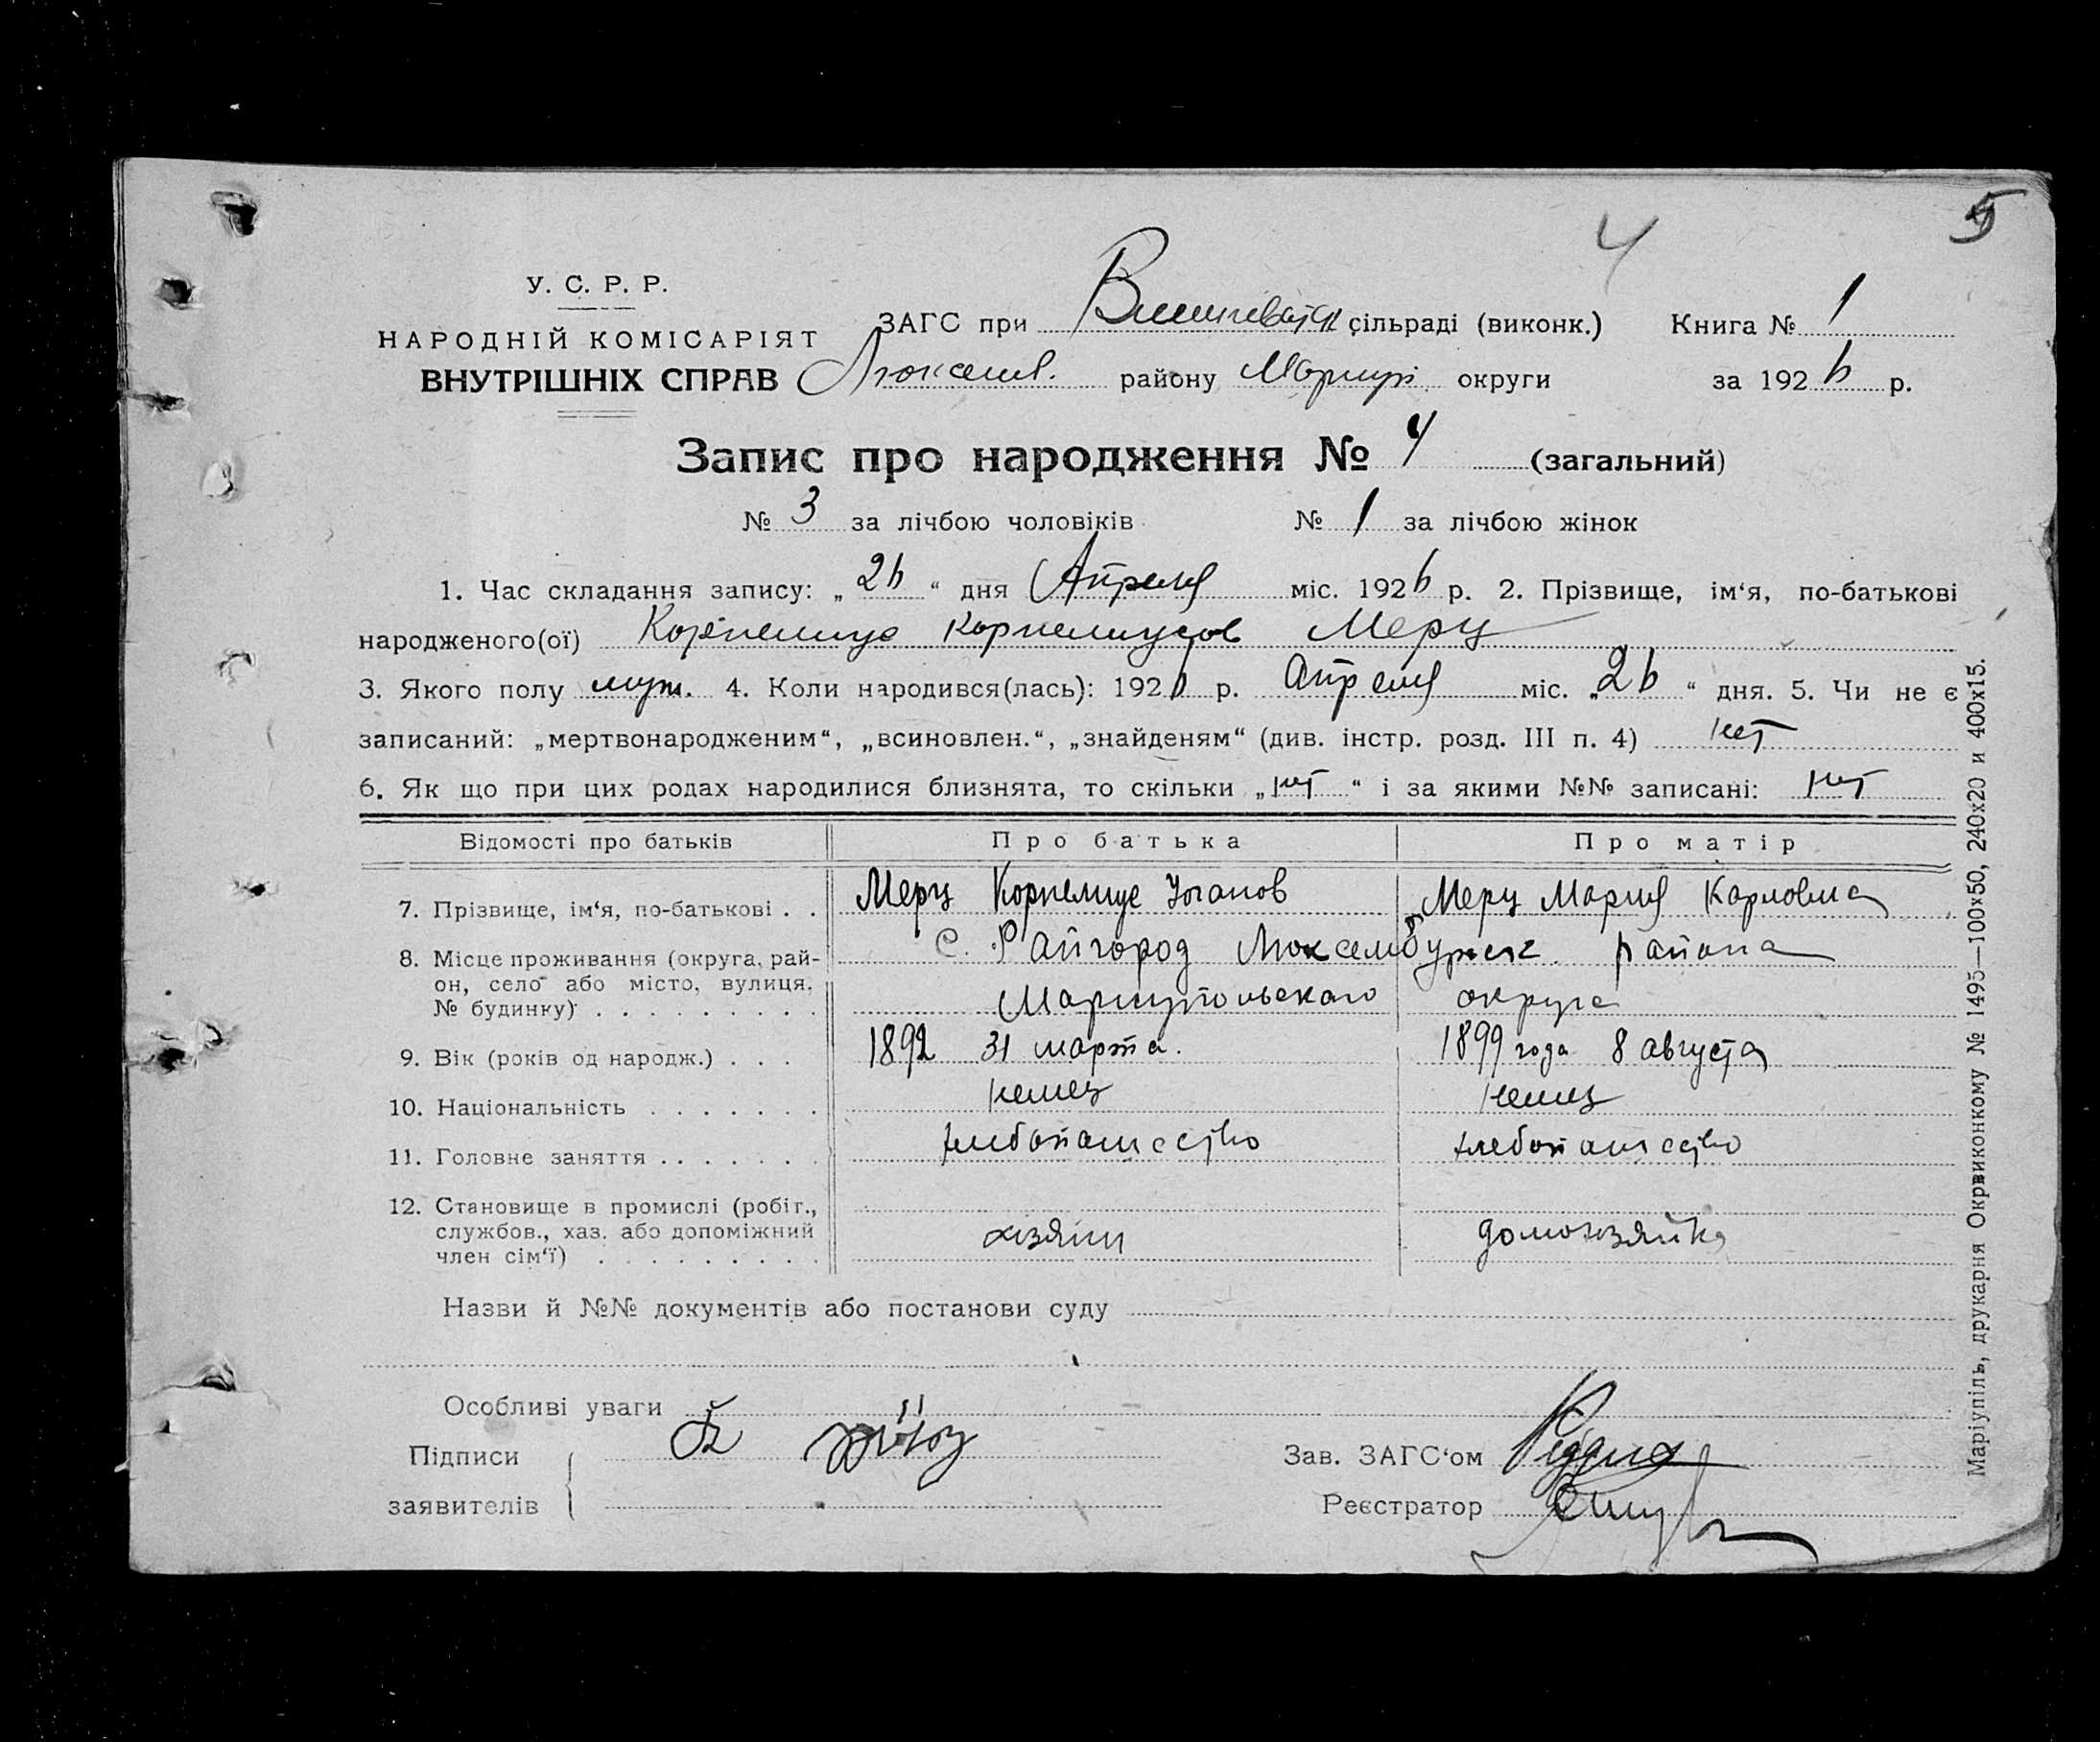 4 5
У. С. Р. Р.
НАРОДНІЙ КОМІСАРІЯТ
ВНУТРІШНІХ СПРАВ
ЗАГС при Вишневатск сільраді (виконк.) Книга № 1
Люксемб. району Маріуп. округи за 1926 р.
Запис про народження № 4 (загальний)
№ 3 за лічбою чоловіків № 1 за лічбою жінок
1. Час складання запису: „26“ дня Апреля міс. 1926 р. 2. Прізвище, ім‘я, по-батькові
народженого(ої) Корнелиус Корнелиусов Мерц
3. Якого полу муж. 4. Коли народився(лась): 1926 р. Апреля міс. „26“ дня. 5. Чи не є
записаний: „мертвонародженим“, „всиновлен.“, „знайденям“ (див. інстр. розд. III п. 4) нет
6. Як що при цих родах народилися близнята, то скільки „нет“ і за якими №№ записані: нет
Відомості про батьків Про батька Про матір
7. Прізвище, ім‘я, по-батькові . . Мерц Корнелиус Иоганов Мерц Мария Карловна
8. Місце проживання (округа, рай-
он, село або місто, вулиця,
№ будинку) . . . . . . . . .
с. Райгород Люксембургск. района
Мариупольскаго округа
9. Вік (років од народж.) . . . 1892 31 марта. 1899 года 8 августа
10. Національність . . . . . . . немец немец
11. Головне заняття . . . . . . . хлебопашество хлебопашество
12. Становище в промислі (робіт.,
службов., хаз. або допоміжний
член сім‘ї) . . . . . . . . .
хозяин домохозяйка
Назви й №№ документів або постанови суду
Особливі уваги
Підписи
заявителів
Зав. ЗАГС‘ом
Реєстратор
Маріупіль, друкарня Окрвиконкому № 1495—100×50, 240х20 и 400х15.